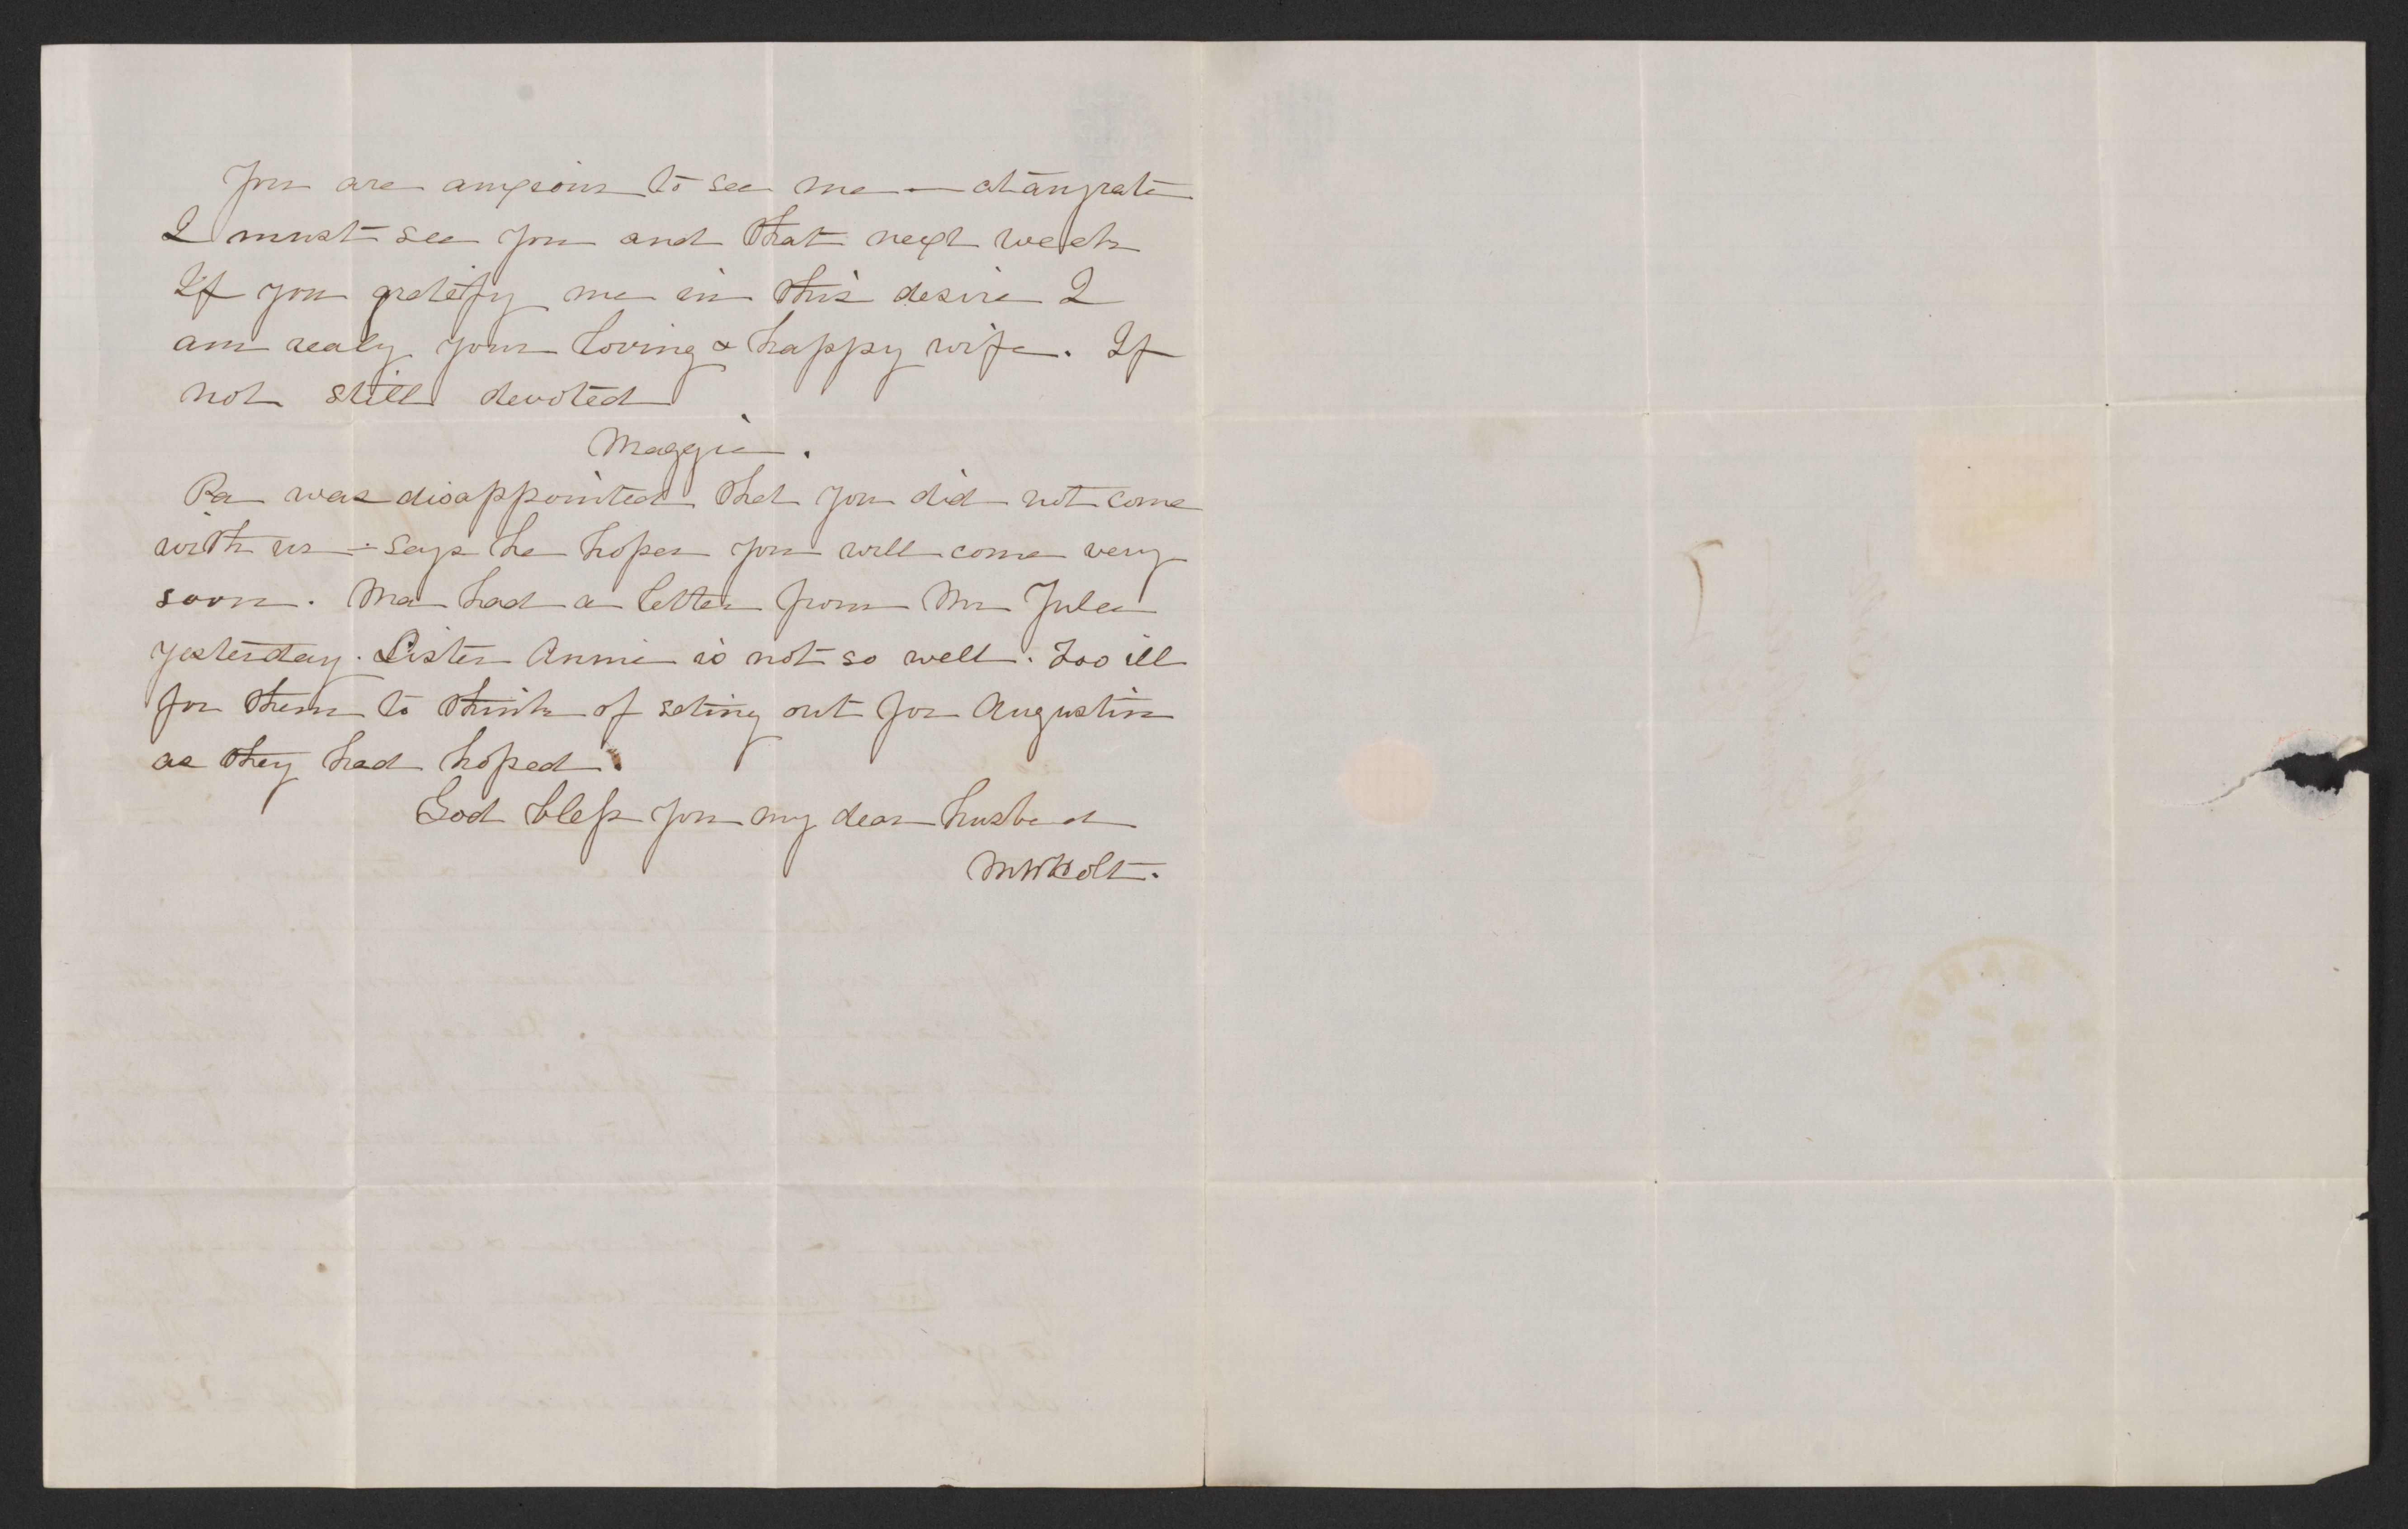 You are anxious to see me — at anyrate
I must see you and that next week
If you gratify me in this desire I
am realy your loving & happy wife. If
not still devoted
Maggie.
Pa was disappointed that you did not come
with us — says he hopes you will come very
soon. Ma had a letter from Mr Jules
yesterday. Sister Annie is not so well. Too ill
for them to think of seting out for Augustin
as they had hoped.
God bless you my dear husband
MWHolt.